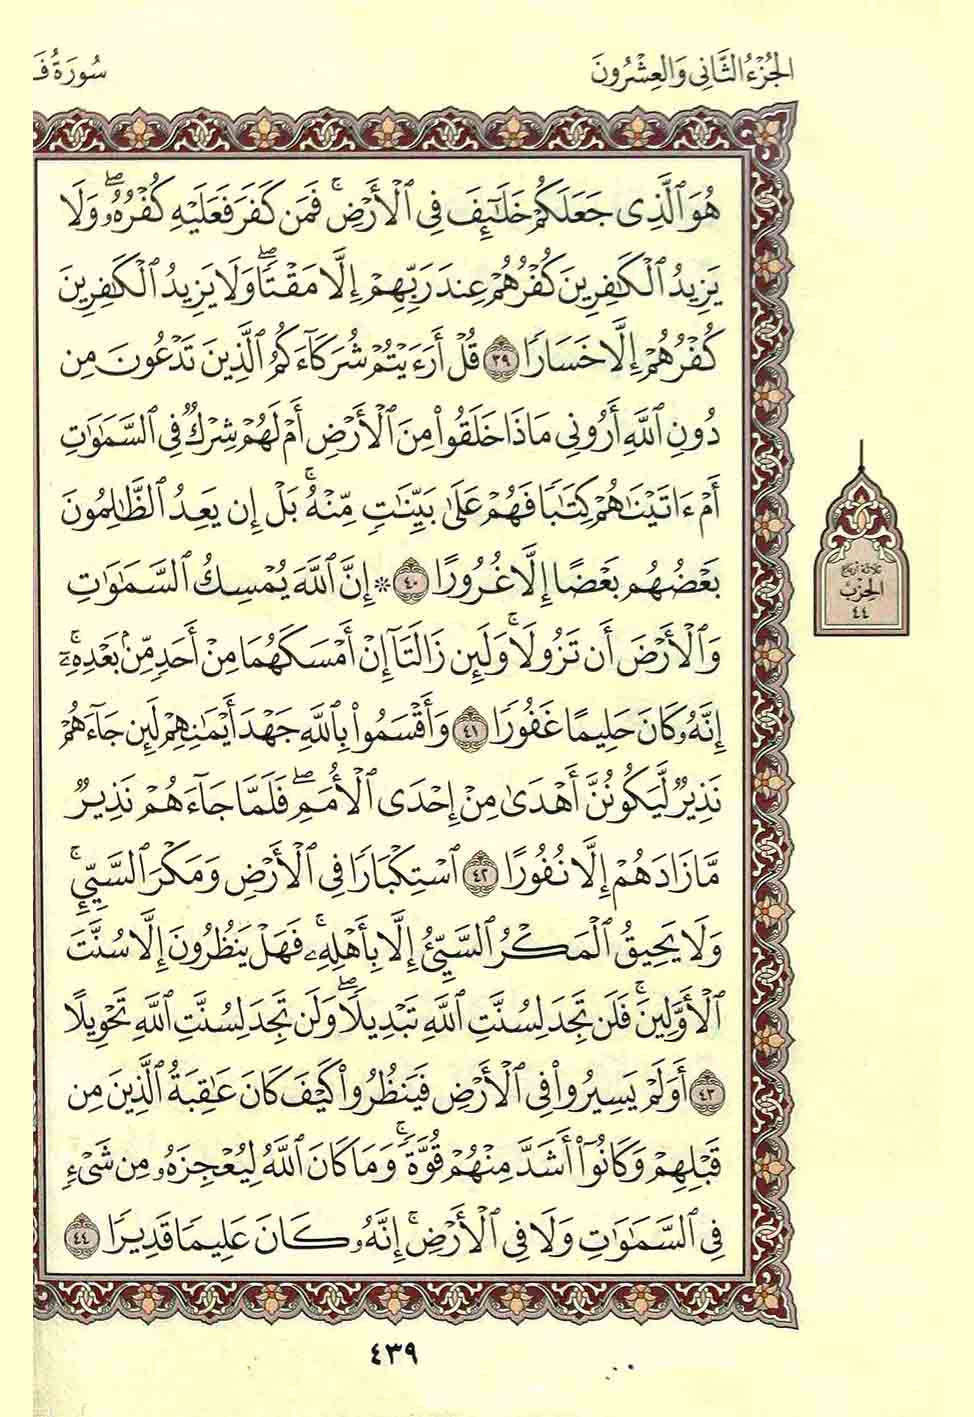 الجُزْءُ الثَّانِي وَالعِشْرُونَ
سُورَةُ فَ
هُوَ ٱلَّذِى جَعَلَكُمْ خَلَٰٓئِفَ فِى ٱلْأَرْضِ ۚ فَمَن كَفَرَ فَعَلَيْهِ كُفْرُهُۥ ۖ وَلَا
يَزِيدُ ٱلْكَٰفِرِينَ كُفْرُهُمْ عِندَ رَبِّهِمْ إِلَّا مَقْتًا ۖ وَلَا يَزِيدُ ٱلْكَٰفِرِينَ
كُفْرُهُمْ إِلَّا خَسَارًا ٣٩ قُلْ أَرَءَيْتُمْ شُرَكَآءَكُمُ ٱلَّذِينَ تَدْعُونَ مِن
دُونِ ٱللَّهِ أَرُونِى مَاذَا خَلَقُوا۟ مِنَ ٱلْأَرْضِ أَمْ لَهُمْ شِرْكٌ فِى ٱلسَّمَٰوَٰتِ
أَمْ ءَاتَيْنَٰهُمْ كِتَٰبًا فَهُمْ عَلَىٰ بَيِّنَتٍ مِّنْهُ ۚ بَلْ إِن يَعِدُ ٱلظَّٰلِمُونَ
بَعْضُهُم بَعْضًا إِلَّا غُرُورًا ٤٠ * إِنَّ ٱللَّهَ يُمْسِكُ ٱلسَّمَٰوَٰتِ
وَٱلْأَرْضَ أَن تَزُولَا ۚ وَلَئِن زَالَتَآ إِنْ أَمْسَكَهُمَا مِنْ أَحَدٍ مِّنۢ بَعْدِهِۦٓ ۚ
إِنَّهُۥ كَانَ حَلِيمًا غَفُورًا ٤١ وَأَقْسَمُوا۟ بِٱللَّهِ جَهْدَ أَيْمَٰنِهِمْ لَئِن جَآءَهُمْ
نَذِيرٌ لَّيَكُونُنَّ أَهْدَىٰ مِنْ إِحْدَى ٱلْأُمَمِ ۖ فَلَمَّا جَآءَهُمْ نَذِيرٌ
مَّا زَادَهُمْ إِلَّا نُفُورًا ٤٢ ٱسْتِكْبَارًا فِى ٱلْأَرْضِ وَمَكْرَ ٱلسَّيِّئِ ۚ
وَلَا يَحِيقُ ٱلْمَكْرُ ٱلسَّيِّئُ إِلَّا بِأَهْلِهِۦ ۚ فَهَلْ يَنظُرُونَ إِلَّا سُنَّتَ
ٱلْأَوَّلِينَ ۚ فَلَن تَجِدَ لِسُنَّتِ ٱللَّهِ تَبْدِيلًا ۖ وَلَن تَجِدَ لِسُنَّتِ ٱللَّهِ تَحْوِيلًا
٤٣ أَوَلَمْ يَسِيرُوا۟ فِى ٱلْأَرْضِ فَيَنظُرُوا۟ كَيْفَ كَانَ عَٰقِبَةُ ٱلَّذِينَ مِن
قَبْلِهِمْ وَكَانُوٓا۟ أَشَدَّ مِنْهُمْ قُوَّةً ۚ وَمَا كَانَ ٱللَّهُ لِيُعْجِزَهُۥ مِن شَىْءٍ
فِى ٱلسَّمَٰوَٰتِ وَلَا فِى ٱلْأَرْضِ ۚ إِنَّهُۥ كَانَ عَلِيمًا قَدِيرًا ٤٤
ثلاثة أرباع
الحِزْب
٤٤
٤٣٩